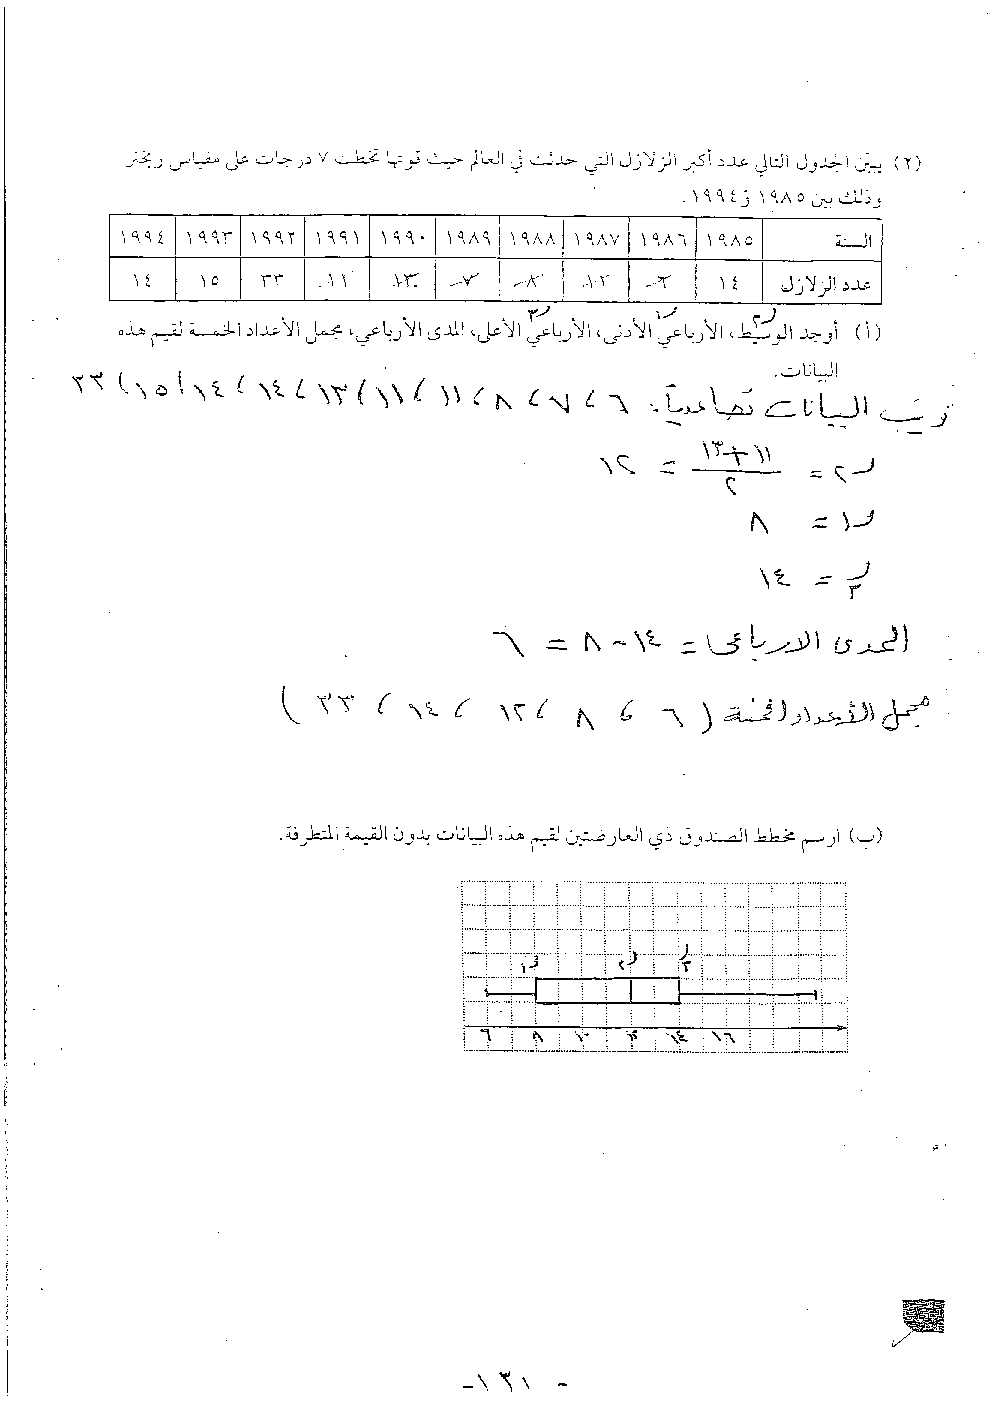 (٢) يبيّن الجدول التالي عدد أكبر الزلازل التي حدثت في العالم حيث قوتها تخطت ٧ درجات على مقياس ريختر
وذلك بين ١٩٨٥ و١٩٩٤.
السنة ١٩٨٥ ١٩٨٦ ١٩٨٧ ١٩٨٨ ١٩٨٩ ١٩٩٠ ١٩٩١ ١٩٩٢ ١٩٩٣ ١٩٩٤
عدد الزلازل ١٤ ٦ ١١ ٨ ٧ ١٣ ١١ ٢٣ ١٥ ١٤
ر٢ ر١ ر٣
(أ) أوجد الوسيط، الأرباعيّ الأدنى، الأرباعيّ الأعلى، المدى الأرباعي، مجمل الأعداد الخمسة لقيم هذه
البيانات.
ترتيب البيانات تصاعدياً: ٦ ، ٧ ، ٨ ، ١١ ، ١١ ، ١٣ ، ١٤ ، ١٤ ، ١٥ ، ٢٣
ر٢ = (١١ + ١٣) / ٢ = ١٢
ر١ = ٨
ر٣ = ١٤
المدى الارباعى = ١٤ - ٨ = ٦
مجمل الأعداد الخمسة (٦ ، ٨ ، ١٢ ، ١٤ ، ٢٣)
(ب) ارسم مخطط الصندوق ذي العارضتين لقيم هذه البيانات بدون القيمة المتطرفة.
ر١ ر٢ ر٣
٦ ٨ ١٠ ١٢ ١٤ ١٦
-١٣١-